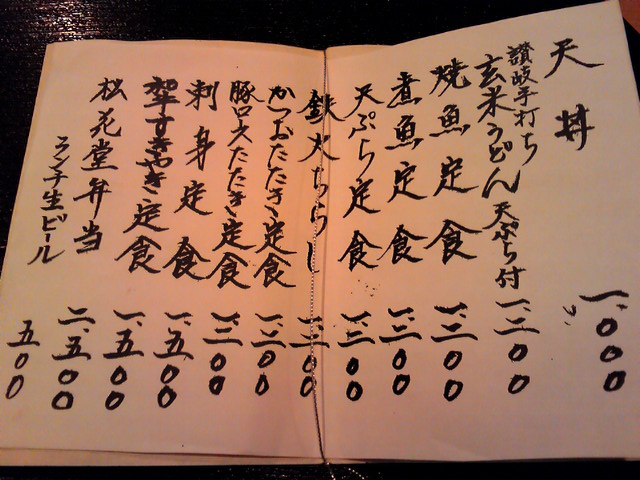 天丼 一、〇〇〇
讃岐手打ち
玄米うどん 天ぷら付 一、三〇〇
焼魚定食 一、三〇〇
煮魚定食 一、三〇〇
天ぷら定食 一、三〇〇
鉄火ちらし 一、三〇〇
かつおたたき定食 一、三〇〇
豚ロースたたき定食 一、三〇〇
刺身定食 一、五〇〇
すきやき定食 一、五〇〇
松花堂弁当 二、五〇〇
ランチ生ビール 五〇〇